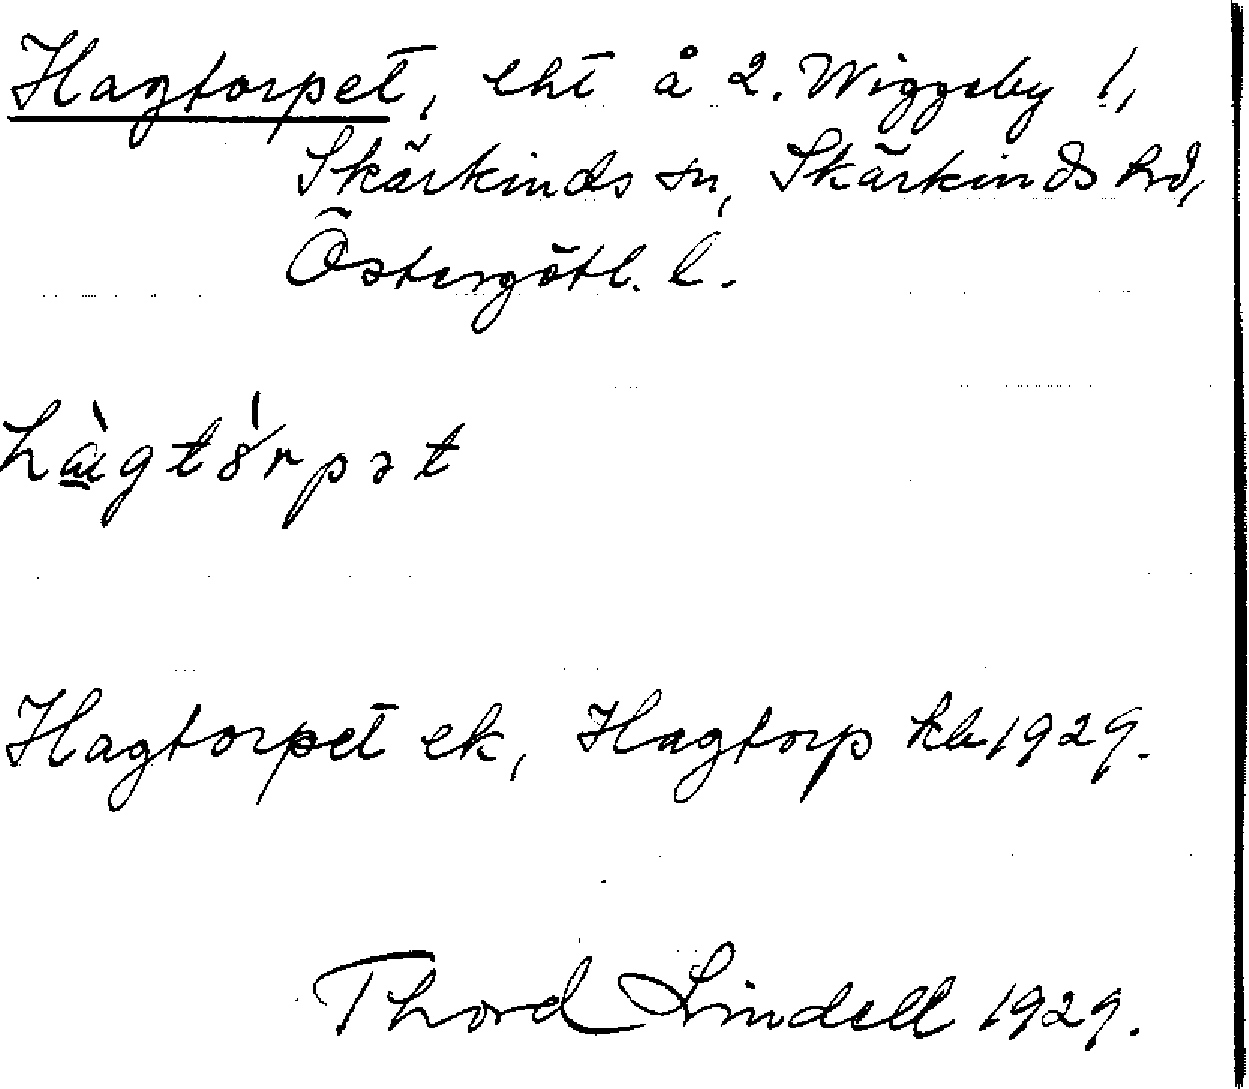 Hagtorpet, lht å 2. Wiggeby 1,
Skärkinds sn, Skärkinds hd,
Östergötl. l.
hàgtórpət
Hagtorpet ek, Hagtorp kb 1929.
Thord Lindell 1929.